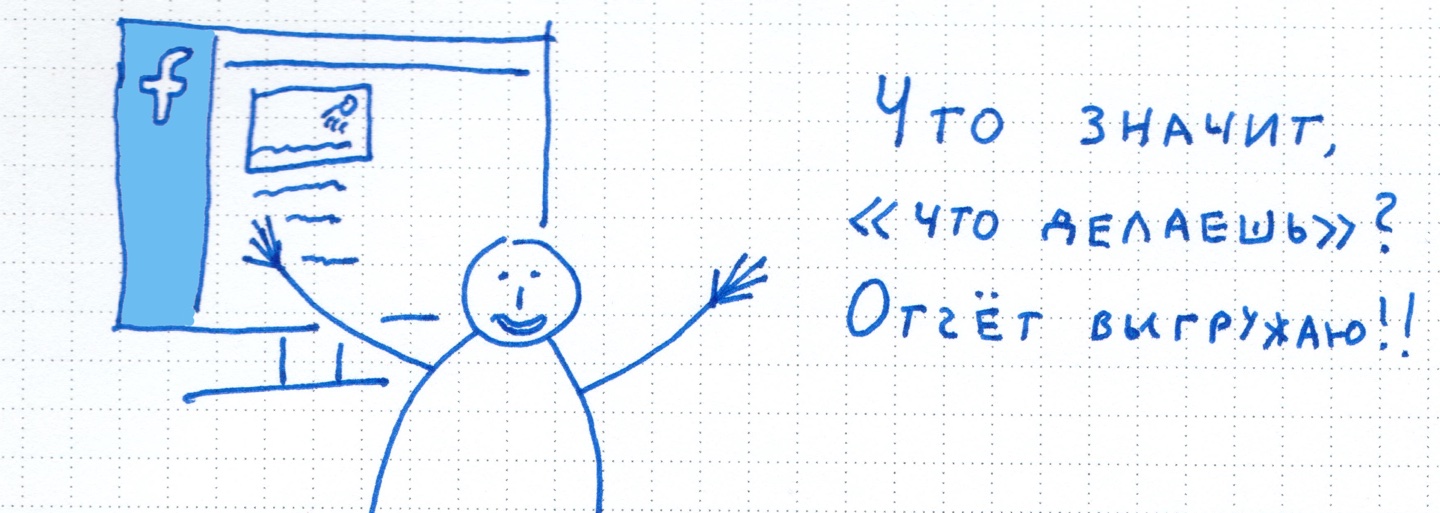 f
Что значит,
«что делаешь»?
Отчёт выгружаю!!